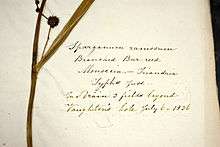 Sparganium ramosum
Branched Bur reed
Monoecia — Triandria
Typha
In Drain 3 fields beyond
Vaughton's hole July 6 - 1836